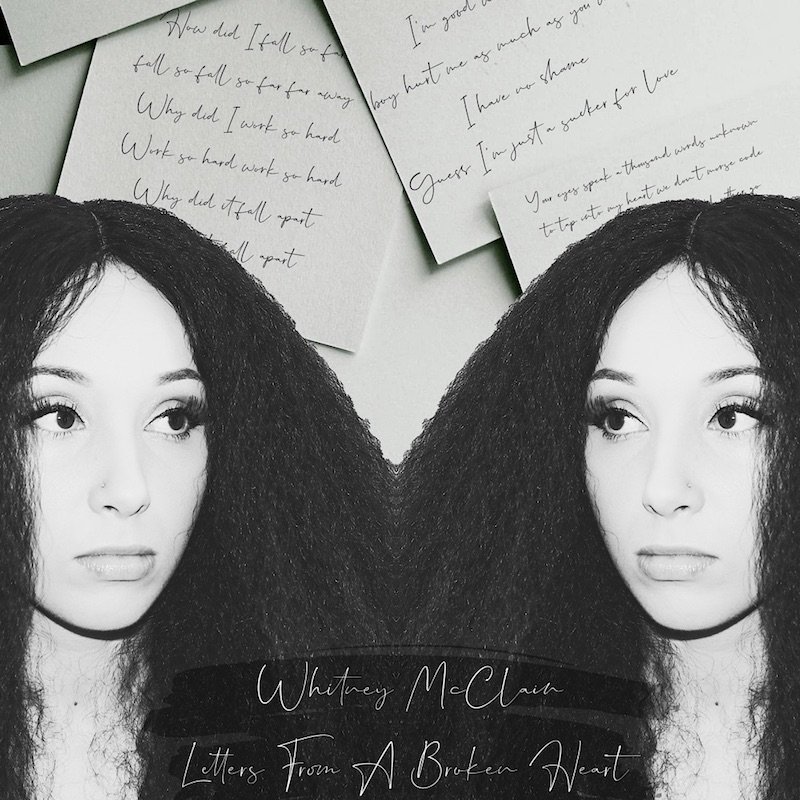 How did I fall so far
fall so fall so far far away
Why did I work so hard
Work so hard work so hard
Why did it fall apart
fall apart
I'm good
boy hurt me as much as you
I have no shame
Guess I'm just a sucker for love
Your eyes speak a thousand words unknown
to tap into my heart we don't morse code
Whitney McClain
Letters From A Broken Heart